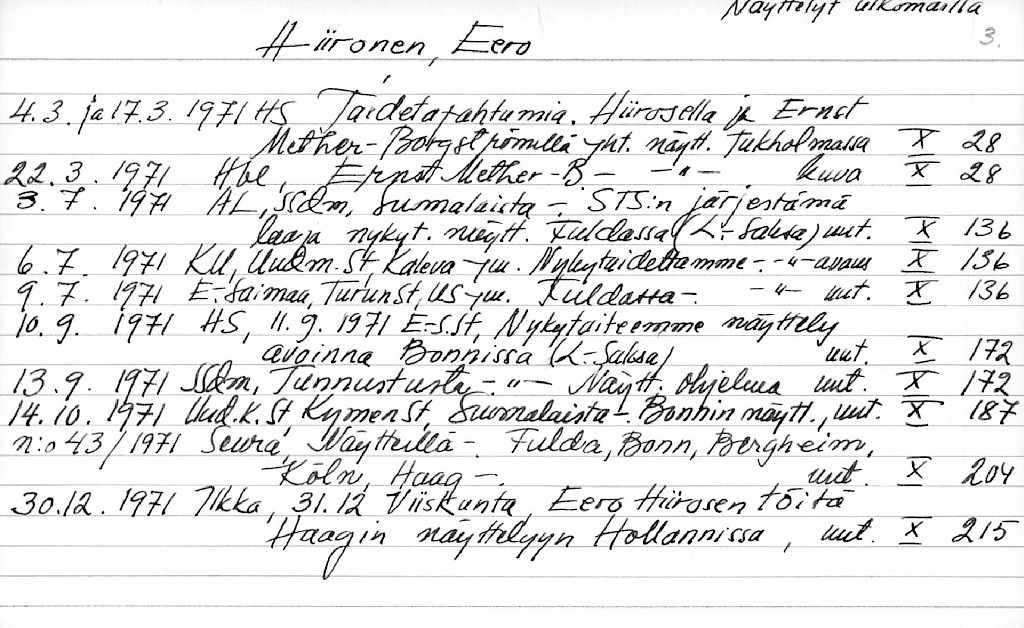 Näyttelyt ulkomailla
3.
Hiironen, Eero
4.3. ja 17.3. 1971 HS Taidetapahtumia. Hiirosella ja Ernst
Mether-Borgströmillä yht. näytt. Tukholmassa X 28
22.3. 1971 Hbl, Ernst Mether-B - -"- kuva X 28
3.7. 1971 AL, SSdm, Suomalaista -. STS:n järjestämä
laaja nykyt. näytt. Fuldassa (L-Saksa) uut. X 136
6.7. 1971 KU, Uudm.St, Kaleva ym. Nykytaidettamme -. -"- avaus X 136
9.7. 1971 E-Saimaa, TurunSt, US ym. Fuldassa -. -"- uut. X 136
10.9. 1971 HS, 11.9. 1971 E-S.St, Nykytaiteemme näyttely
avoinna Bonnissa (L-Saksa) uut. X 172
13.9. 1971 SSdm, Tunnustusta - -"- Näytt. ohjelma uut. X 172
14.10. 1971 Uud.K.St KymenSt, Suomalaista -. Bonnin näytt., uut. X 187
n:o 43/1971 Seura, Näytteillä -. Fulda, Bonn, Bergheim,
Köln, Haag -. uut. X 204
30.12. 1971 Ilkka, 31.12 Viiskunta, Eero Hiirosen töitä
Haagin näyttelyyn Hollannissa, uut. X 215